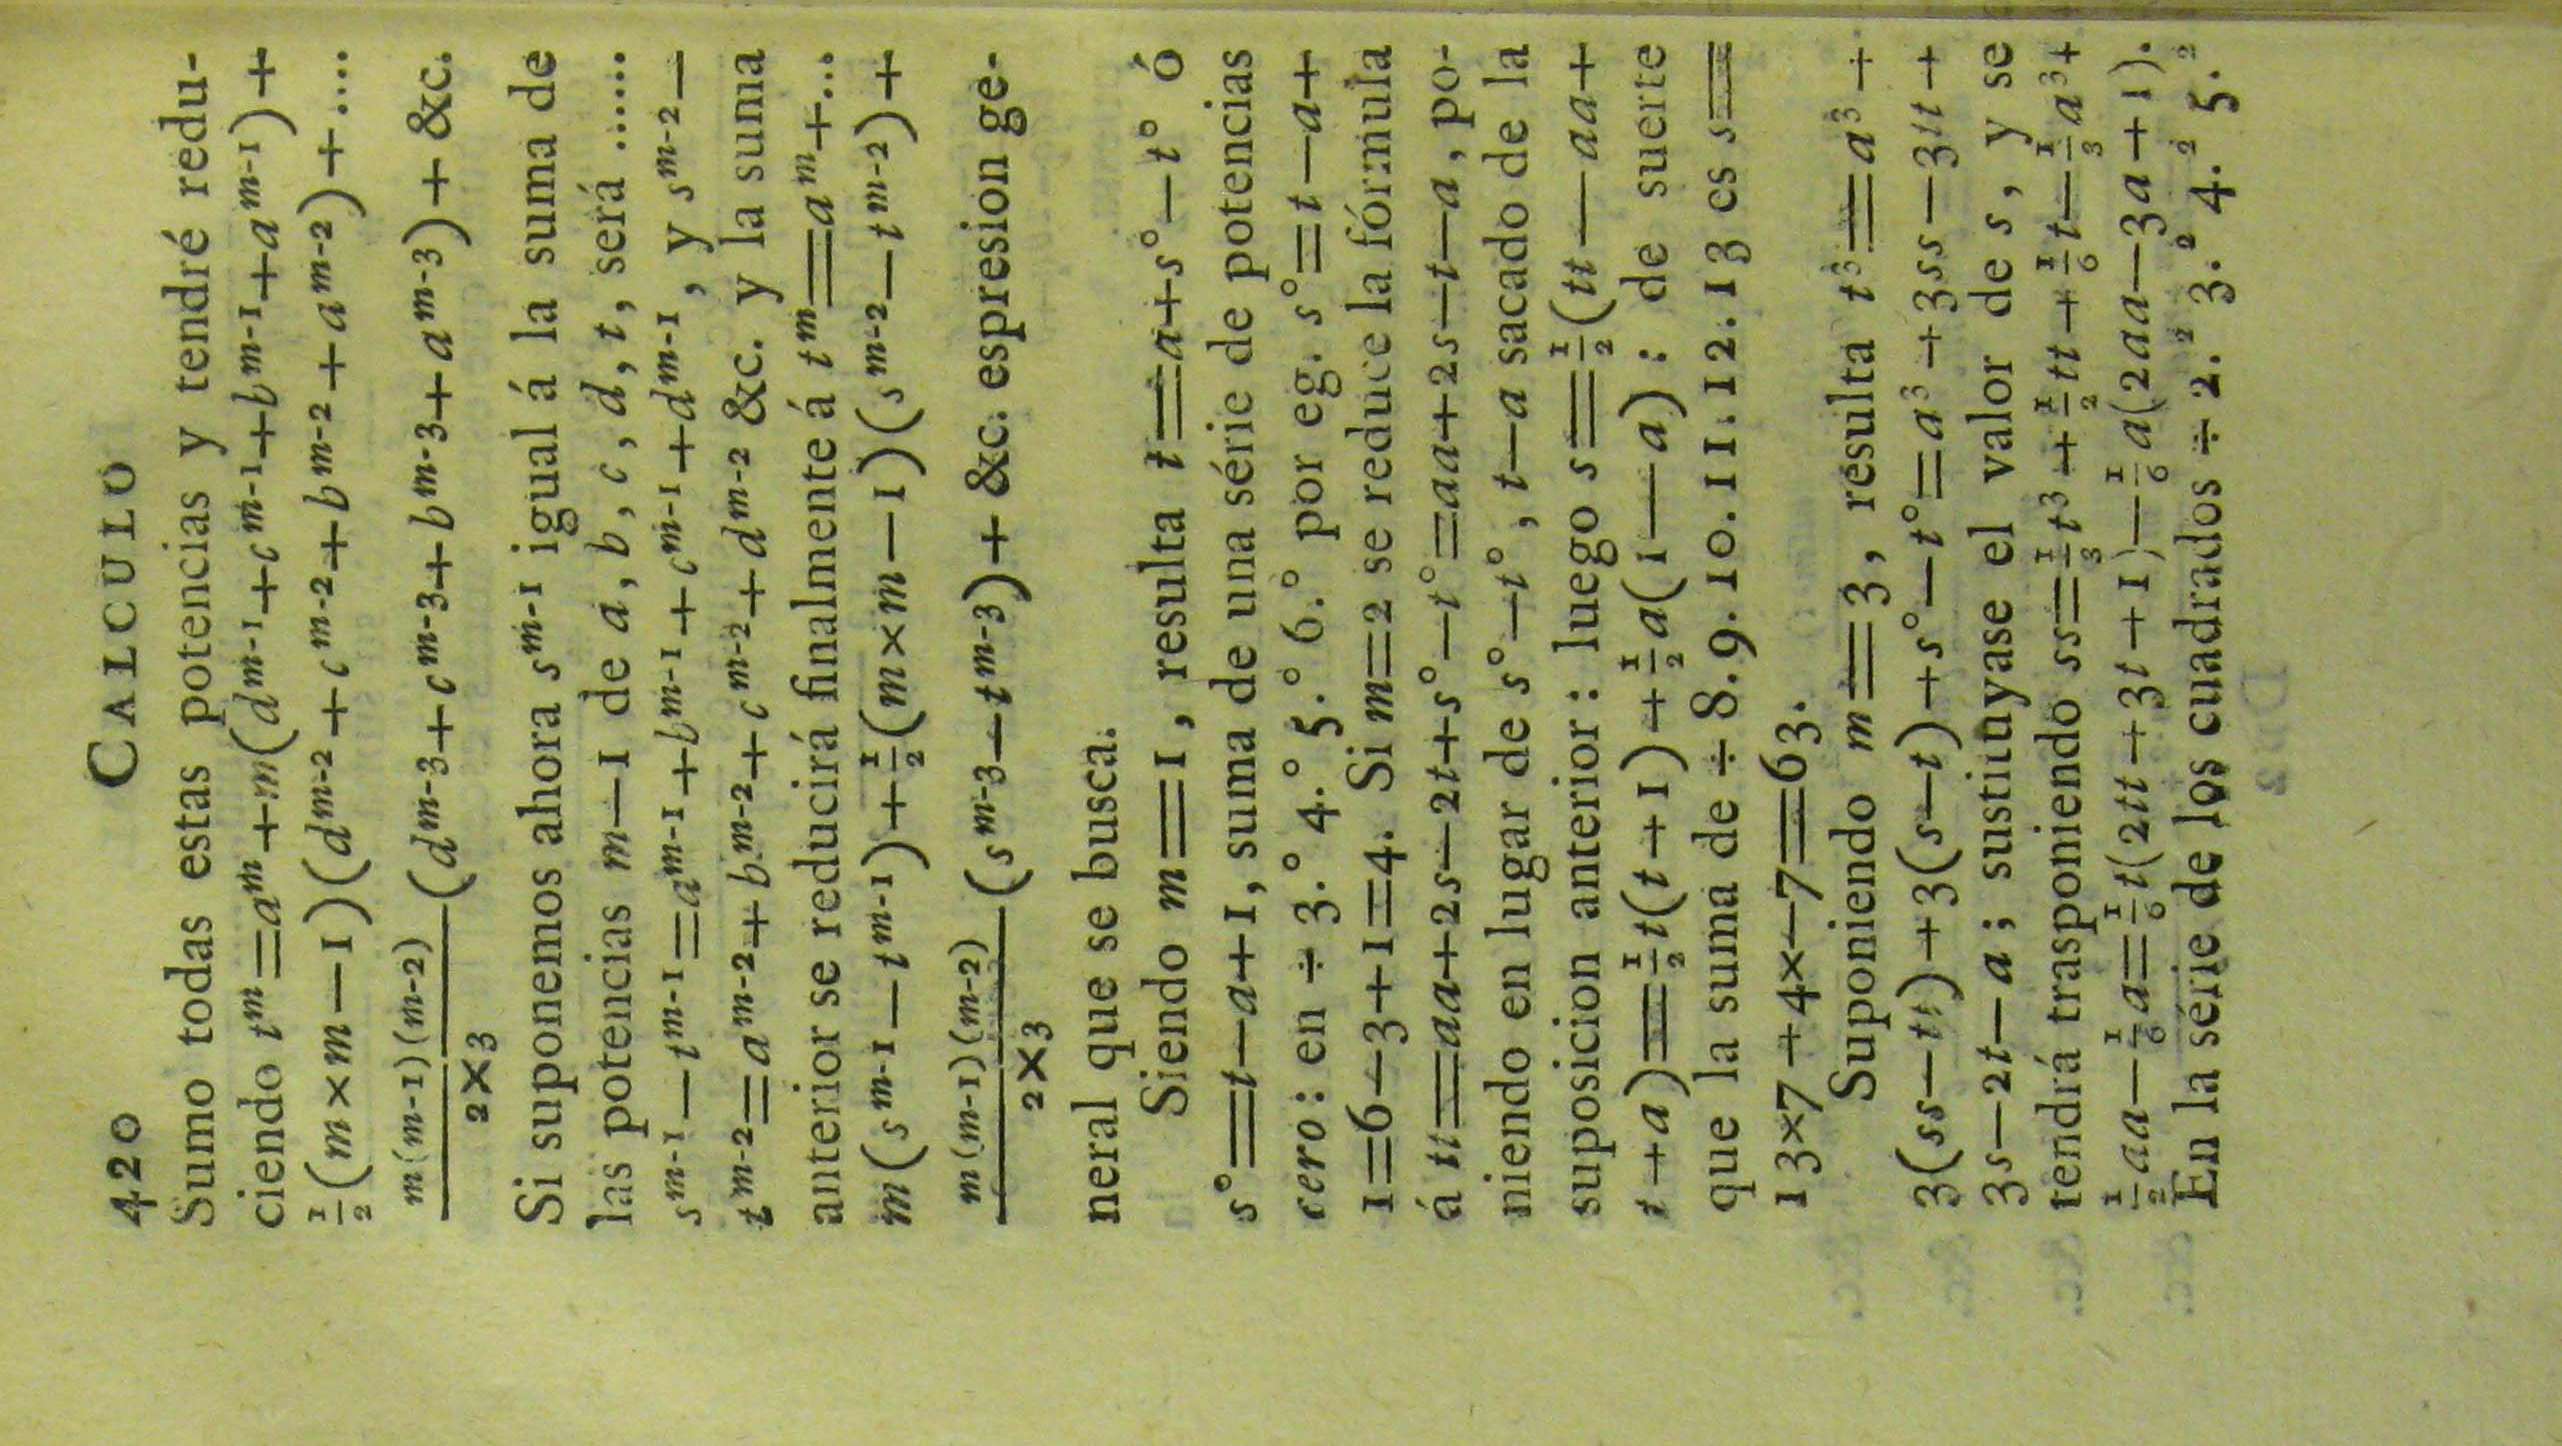 420 CALCULO
Sumo todas estas potencias y tendré redu-
ciendo t^m=a^m+m(d^{m-1}+c^{m-1}+b^{m-1}+a^{m-1})+
½(m×m—1)(d^{m-2}+c^{m-2}+b^{m-2}+a^{m-2})+....
m(m-1)(m-2)
2×3
(d^{m-3}+c^{m-3}+b^{m-3}+a^{m-3})+&c.
Si suponemos ahora s^{m-1} igual á la suma de
las potencias m—1 de a, b, c, d, t, será ......
s^{m-1}—t^{m-1}=a^{m-1}+b^{m-1}+c^{m-1}+d^{m-1}, y s^{m-2}—
t^{m-2}=a^{m-2}+b^{m-2}+c^{m-2}+d^{m-2} &c. y la suma
anterior se reducirá finalmente á t^m=a^m+...
m(s^{m-1}—t^{m-1})+½(m×m—1)(s^{m-2}—t^{m-2})+
m(m-1)(m-2)
2×3
(s^{m-3}—t^{m-3})+&c. espresion ge-
neral que se busca.
Siendo m=1, resulta t=a+s°—t° ó
s°=t—a+1, suma de una série de potencias
cero: en ÷ 3.° 4.° 5.° 6.° por eg. s°=t—a+
1=6—3+1=4. Si m=2 se reduce la fórmula
á tt=aa+2s—2t+s°—t°=aa+2s—t—a, po-
niendo en lugar de s°—t°, t—a sacado de la
suposicion anterior: luego s=½(tt—aa+
t+a)=½t(t+1)+½a(1—a): de suerte
que la suma de ÷8.9.10.11.12.13 es s=
13×7+4×—7=63.
Suponiendo m=3, resulta t³=a³+
3(ss—tt)+3(s—t)+s°—t°=a³+3ss—3tt+
3s—2t—a; sustituyase el valor de s, y se
tendrá trasponiendo ss=⅓t³+½tt+⅙t—⅓a³+
½aa—⅙a=⅙t(2tt+3t+1)—⅙a(2aa—3a+1).
En la série de los cuadrados ÷2.² 3.² 4.² 5.²